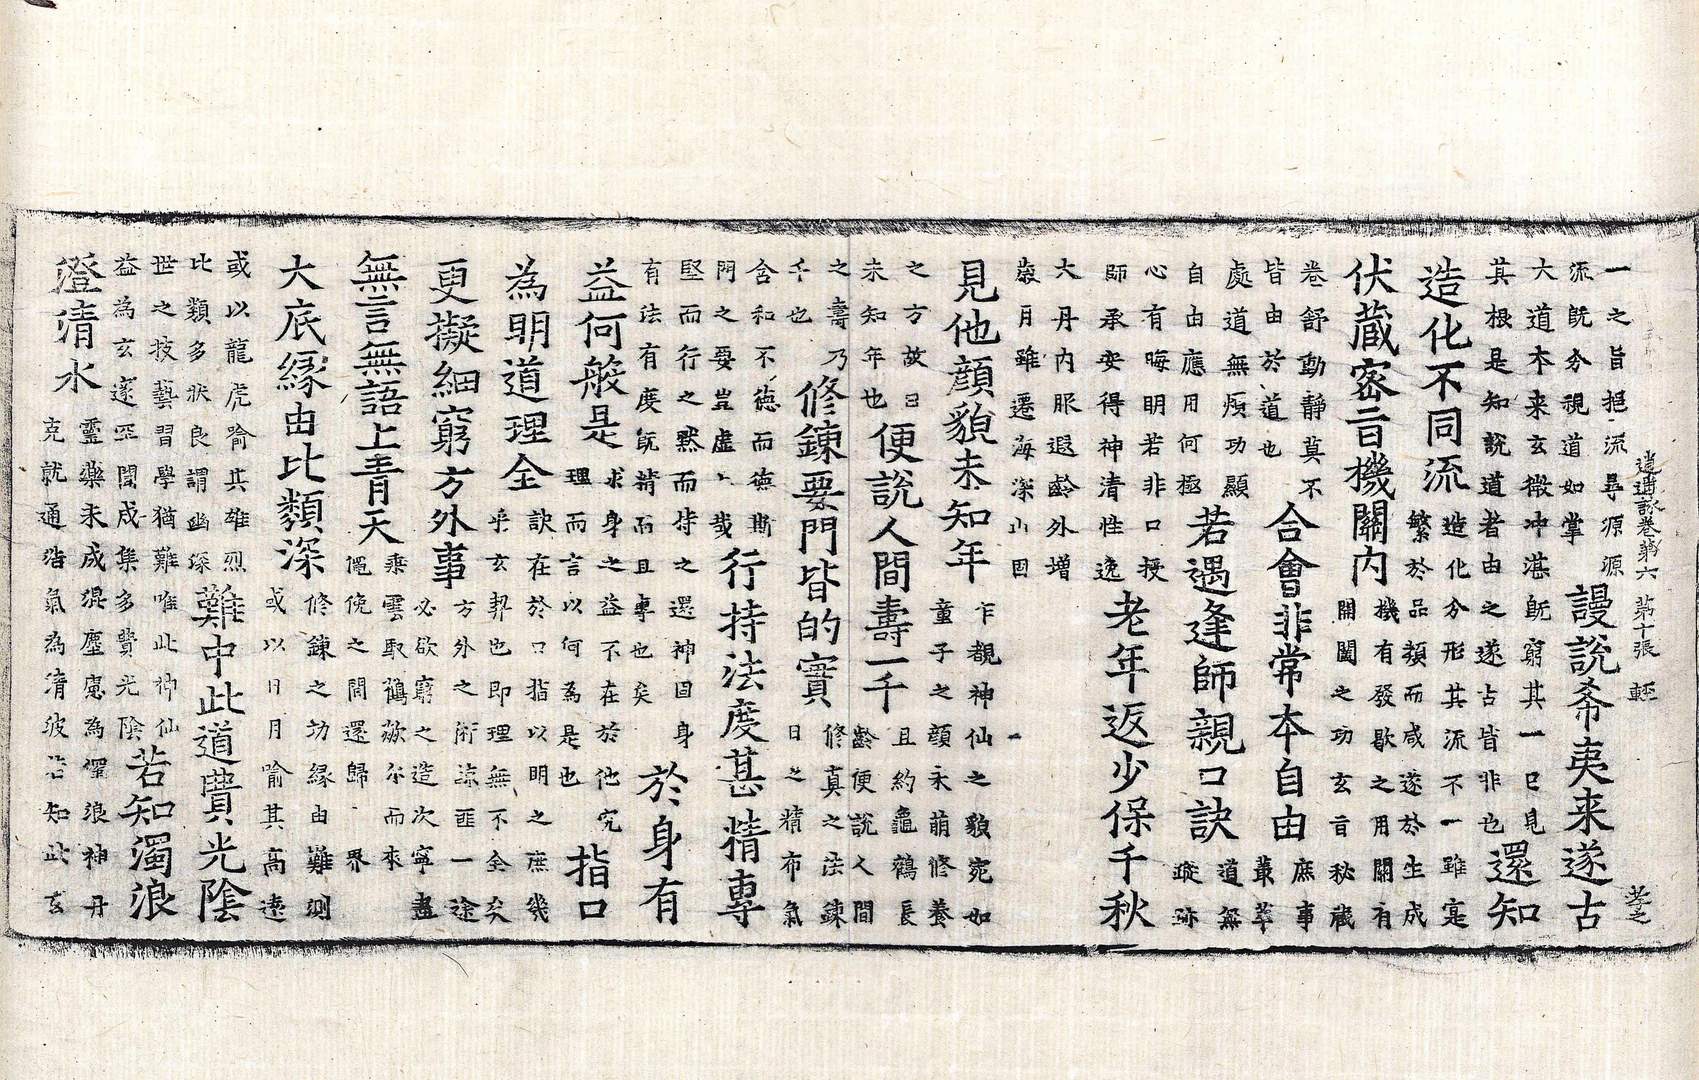 逍遥詠卷第六 第十張 輕 孝之
一之旨挹流尋源源
流既分視道如掌
謾說希夷来遂古
大道本来玄微冲湛既窮其一已見
其根是知說道者由之遂古皆非也
還知
造化不同流
造化分形其流不一雖寔
繁於品類而咸遂於生成
伏蔵密旨機關内
機有發歇之用關有
開闔之功玄旨秘蔵
卷舒動靜莫不
皆由於道也
合會非常本自由
庶事
叢萃
處道無煩功顯
自由應用何極
若遇逢師親口訣
道無
蹤跡
心有晦明若非口授
師承安得神清性逸
老年返少保千秋
大丹内服遐齡外増
歳月雖遷海深山固
見他顔貌未知年
乍覩神仙之貌宛如
童子之顔永萌修養
之方故曰
未知年也
便說人間壽一千
且約龜鶴長
齡便說人間
之壽乃
千也
修錬要門皆的實
修真之法錬
日之精布氣
含和不徳而徳斯
門之要豈虚〻哉
行持法度甚精專
堅而行之黙而持之還神固身
有法有度既精而且專也矣
於身有
益何般是
求身之益不在於他究
理而言以何為是也
指口
為明道理全
訣在於口指以明之庶幾
乎玄契也即理無不全矣
更擬細窮方外事
方外之術諒匪一途
必欲窮之造次寧盡
無言無語上青天
乘雲取鶴歘尒而来
僶俛之間還歸 界
大底縁由比類深
修錬之功縁由難測
或以日月喻其高遠
或以龍虎喻其雄烈
比類多状良謂幽深
難中此道貴光陰
世之技藝習學猶難唯此神仙
益為玄邃亟聞成集多費光陰
若知濁浪
澄清水
靈藥未成混塵慮為濁浪神丹
克就通浩氣為清波若知此玄